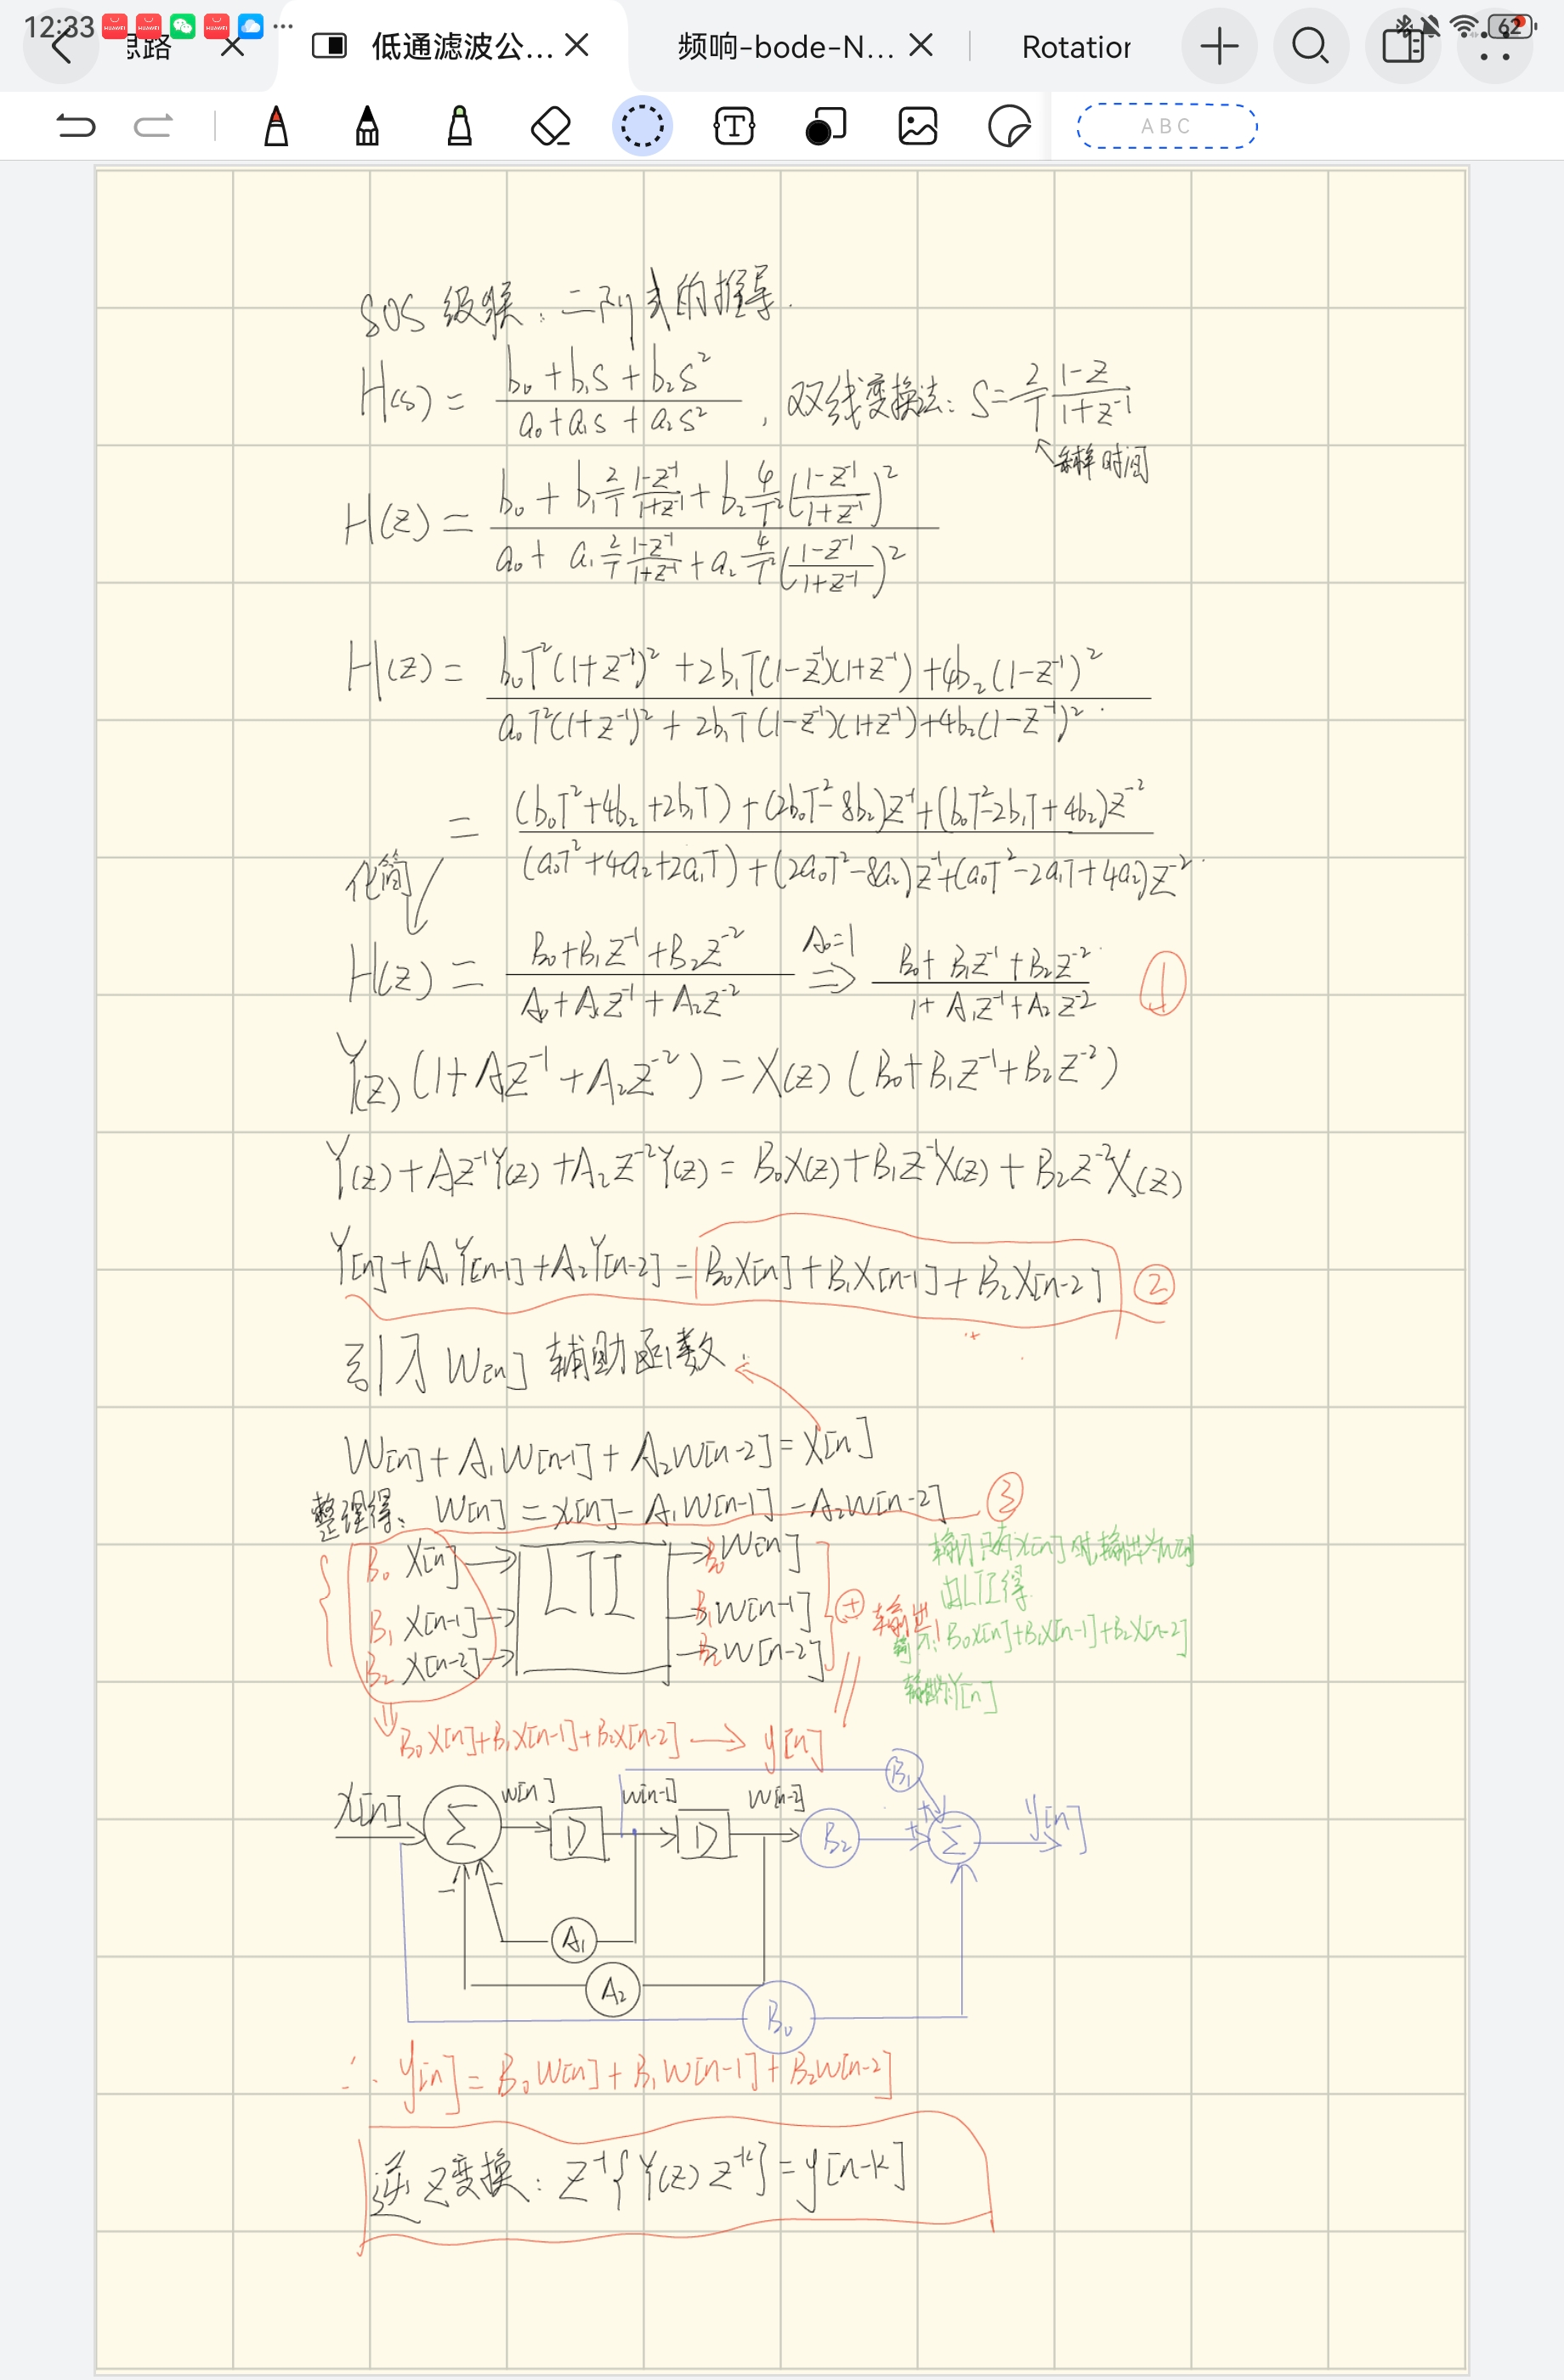 12:33
62
思路
低通滤波公…
频响-bode-N…
Rotation
ABC
SOS 级联：二阶式的推导.
H(s) = (b₀+b₁s+b₂s²)/(a₀+a₁s+a₂s²) ，双线变换法：S=2/T (1-z)/(1+z⁻¹)
采样时间
H(z) = (b₀+b₁ 2/T (1-z⁻¹)/(1+z⁻¹)+b₂ 4/T² ((1-z⁻¹)/(1+z⁻¹))²)/(a₀+a₁ 2/T (1-z⁻¹)/(1+z⁻¹)+a₂ 4/T² ((1-z⁻¹)/(1+z⁻¹))²)
H(z) = (b₀T²(1+z⁻¹)²+2b₁T(1-z⁻¹)(1+z⁻¹)+4b₂(1-z⁻¹)²)/(a₀T²(1+z⁻¹)²+2b₁T(1-z⁻¹)(1+z⁻¹)+4b₂(1-z⁻¹)²)
= ((b₀T²+4b₂+2b₁T)+(2b₀T²-8b₂)z⁻¹+(b₀T²-2b₁T+4b₂)z⁻²)/((a₀T²+4a₂+2a₁T)+(2a₀T²-8a₂)z⁻¹+(a₀T²-2a₁T+4a₂)z⁻²)
化简
H(z) = (B₀+B₁z⁻¹+B₂z⁻²)/(A₀+A₁z⁻¹+A₂z⁻²) A₀=1 ⇒ (B₀+B₁z⁻¹+B₂z⁻²)/(1+A₁z⁻¹+A₂z⁻²) ①
Y(z)(1+A₁z⁻¹+A₂z⁻²)=X(z)(B₀+B₁z⁻¹+B₂z⁻²)
Y(z)+A₁z⁻¹Y(z)+A₂z⁻²Y(z)=B₀X(z)+B₁z⁻¹X(z)+B₂z⁻²X(z)
Y[n]+A₁Y[n-1]+A₂Y[n-2]=B₀X[n]+B₁X[n-1]+B₂X[n-2] ②
引入 W[n] 辅助函数.
W[n]+A₁W[n-1]+A₂W[n-2]=X[n]
整理得：W[n]=x[n]-A₁W[n-1]-A₂W[n-2] ③
B₀ X[n] → LTI → B₀W[n]
B₁ X[n-1] → B₁W[n-1]
B₂ X[n-2] → B₂W[n-2]
+ 输出
输入只有x[n]时,输出为W[n]
由LTI得
输入：B₀X[n]+B₁X[n-1]+B₂X[n-2]
输出为Y[n]
B₀X[n]+B₁X[n-1]+B₂X[n-2] → y[n]
B₁
X[n] Σ w[n] D w[n-1] D w[n-2] B₂ + + Σ y[n]
- -
A₁
A₂
B₀
∴ y[n]=B₀W[n]+B₁W[n-1]+B₂W[n-2]
逆Z变换：Z⁻¹{Y(z)z⁻ᵏ}=y[n-k]